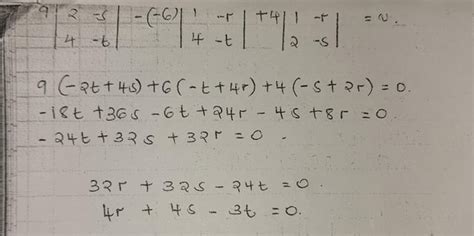 9 | 2 -s | -(-6) | 1 -r | +4 | 1 -r | = 0.
| 4 -t | | 4 -t | | 2 -s |
9 (-2t+4s) +6 (-t+4r) +4 (-s+2r) = 0.
-18t + 36s - 6t + 24r - 4s + 8r = 0.
- 24t + 32s + 32r = 0.
32r + 32s - 24t = 0.
4r + 4s - 3t = 0.